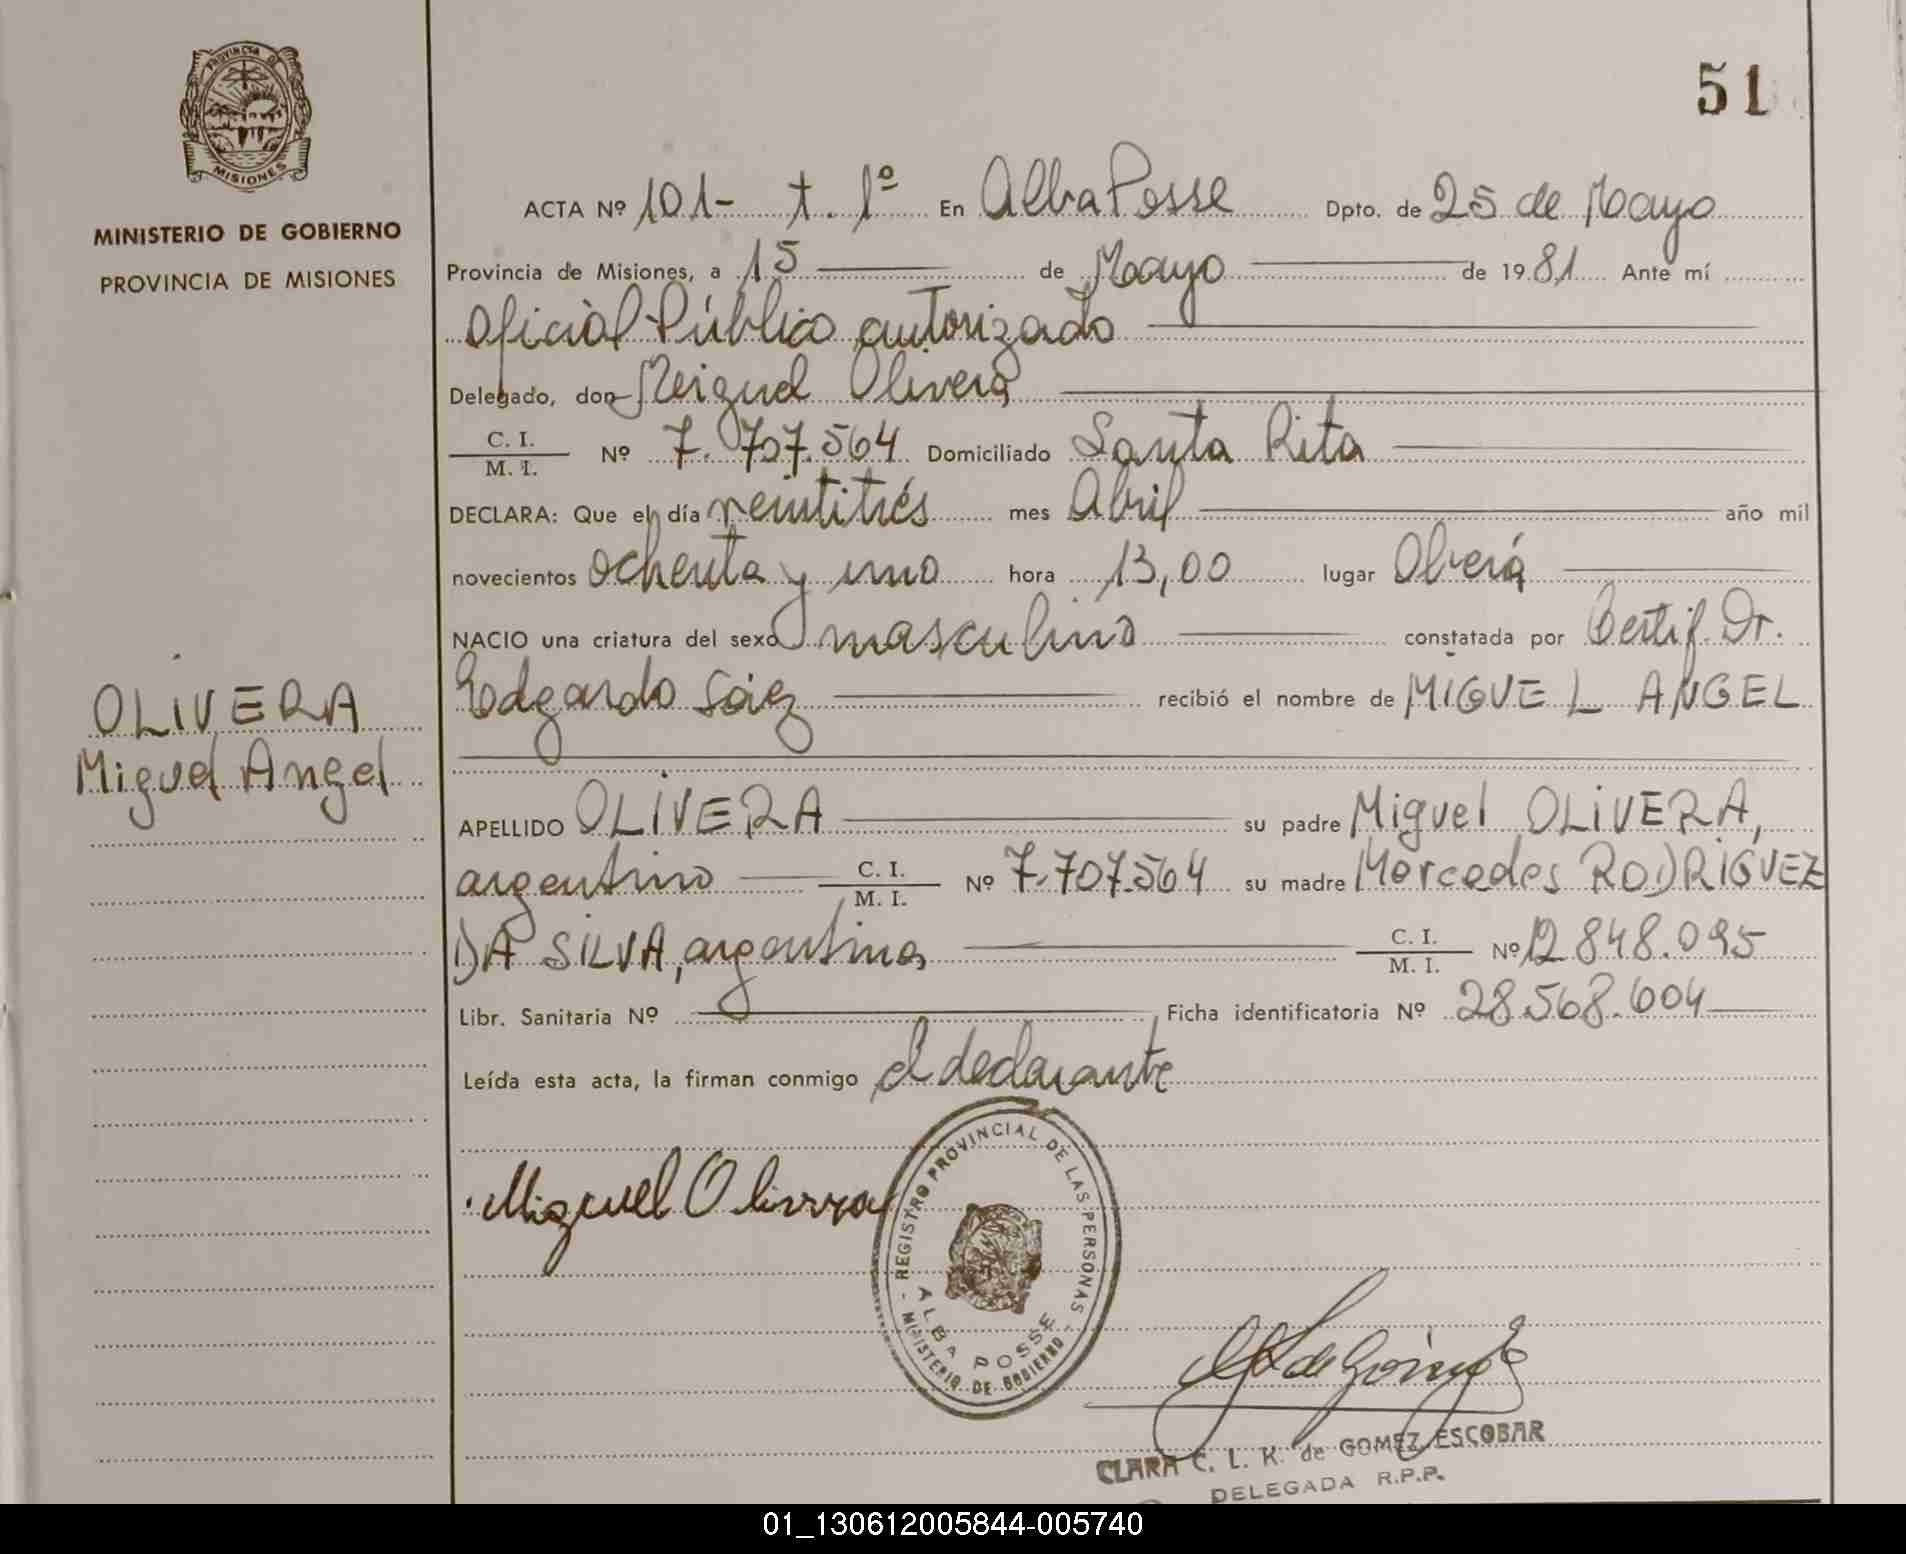 PROVINCIA DE
MISIONES
MINISTERIO DE GOBIERNO
PROVINCIA DE MISIONES
OLIVERA
Miguel Angel
51
ACTA Nº 101- t. 1º En Alba Posse Dpto. de 25 de Mayo
Provincia de Misiones, a 15 de Mayo de 1981 Ante mí
Oficial Público autorizado
Delegado, don Miguel Olivera
C. I.
M. I. Nº 7.707.564 Domiciliado Santa Rita
DECLARA: Que el día veintitrés mes Abril año mil
novecientos ochenta y uno hora 13,00 lugar Oberá
NACIO una criatura del sexo masculino constatada por Certif. Dr.
Edgardo Sáez recibió el nombre de MIGUEL ANGEL
APELLIDO OLIVERA su padre Miguel OLIVERA,
argentino C. I. M. I. Nº 7.707.564 su madre Mercedes RODRIGUEZ
DA SILVA, argentina C. I. M. I. Nº 12.848.095
Libr. Sanitaria Nº Ficha identificatoria Nº 28.568.604
Leída esta acta, la firman conmigo el declarante
Miguel Olivera
REGISTRO PROVINCIAL DE LAS PERSONAS
ALBA POSSE
MINISTERIO DE GOBIERNO
CLARA C. L. K. de GOMEZ ESCOBAR
DELEGADA R.P.P.
01_130612005844-005740